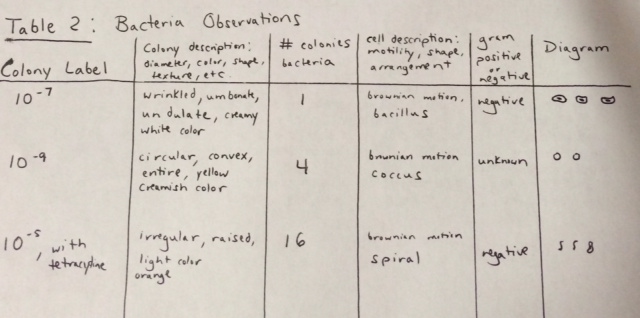 Table 2: Bacteria Observations
Colony Label
Colony description:
diameter, color, shape,
texture, etc.
# colonies
bacteria
cell description:
motility, shape,
arrangement
gram
positive
or
negative
Diagram
10⁻⁷
wrinkled, umbonate,
undulate, creamy
white color
1
brownian motion,
bacillus
negative
10⁻⁹
circular, convex,
entire, yellow
creamish color
4
brownian motion
coccus
unknown
10⁻⁵, with
tetracycline
irregular, raised,
light color
orange
16
brownian motion
spiral
negative